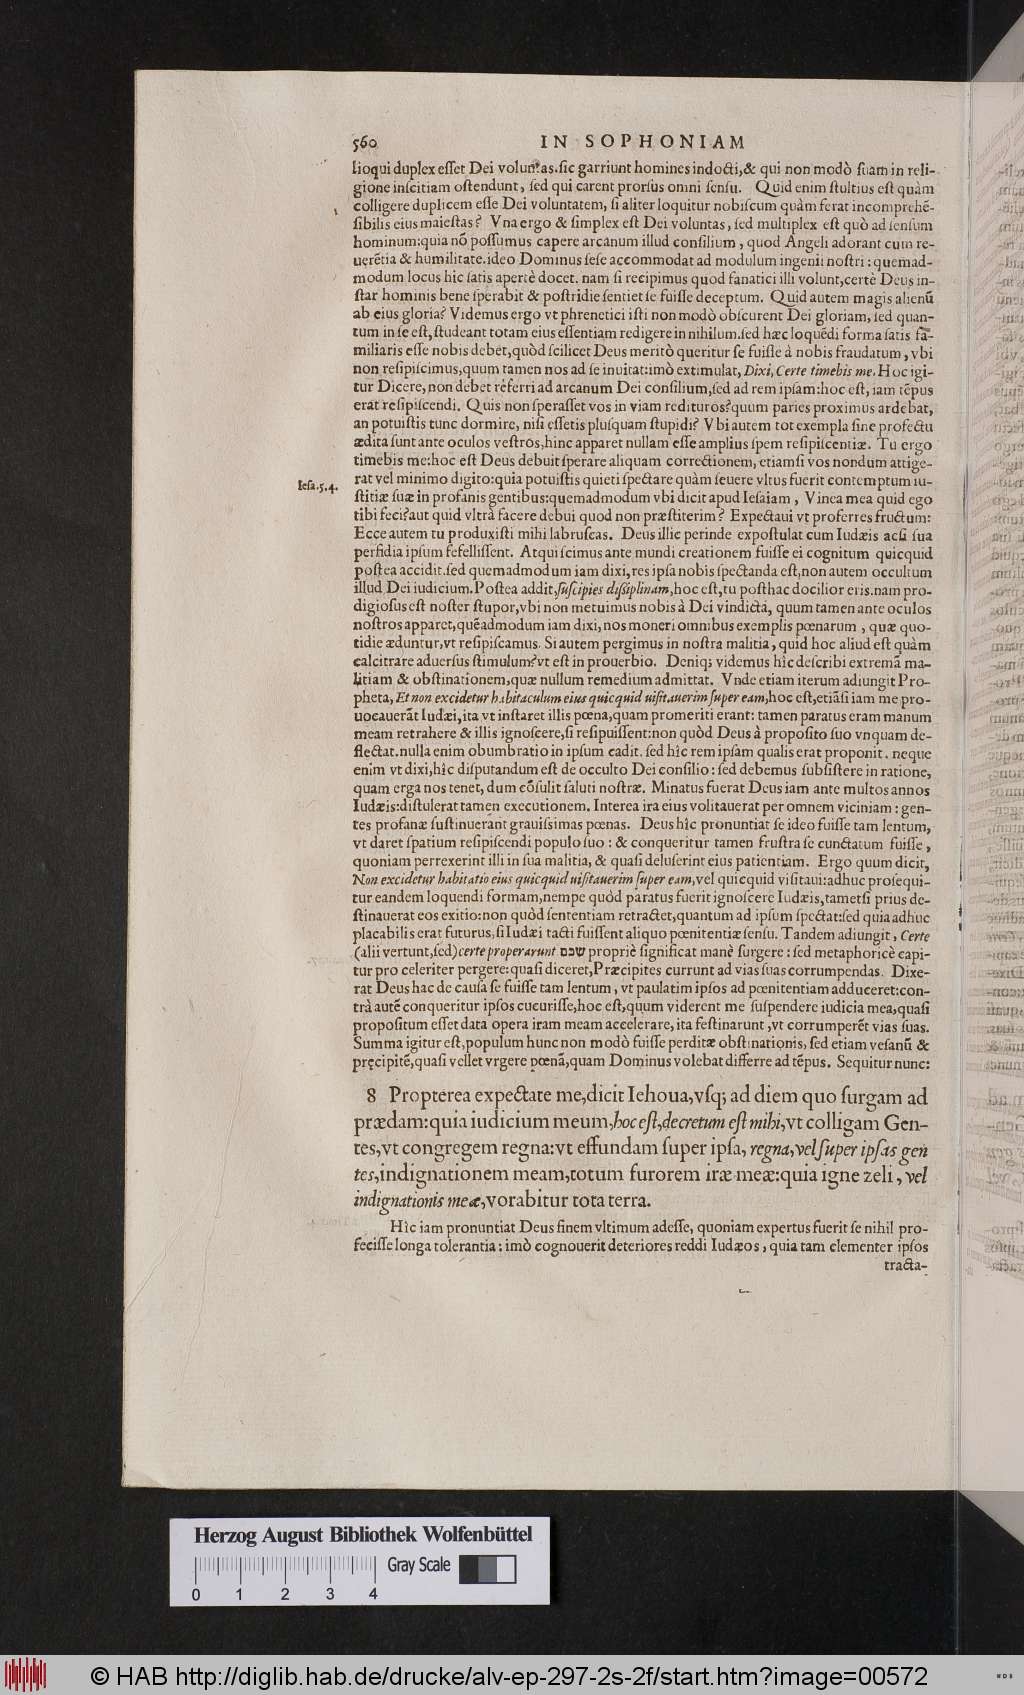 560 IN SOPHONIAM
lioqui duplex eſſet Dei voluntas. ſic garriunt homines indocti, & qui non modò ſuam in reli-
gione inſcitiam oſtendunt, ſed qui carent prorſus omni ſenſu. Quid enim ſtultius eſt quàm
colligere duplicem eſſe Dei voluntatem, ſi aliter loquitur nobiſcum quàm ferat incomprehẽ-
ſibilis eius maieſtas? Vna ergo & ſimplex eſt Dei voluntas, ſed multiplex eſt quò ad ſenſum
hominum: quia nõ poſſumus capere arcanum illud conſilium, quod Angeli adorant cum re-
uerẽtia & humilitate. ideo Dominus ſeſe accommodat ad modulum ingenii noſtri: quemad-
modum locus hic ſatis apertè docet. nam ſi recipimus quod fanatici illi volunt, certè Deus in-
ſtar hominis bene ſperabit & poſtridie ſentiet ſe fuiſſe deceptum. Quid autem magis alienũ
ab eius gloria? Videmus ergo vt phrenetici iſti non modò obſcurent Dei gloriam, ſed quan-
tum in ſe eſt, ſtudeant totam eius eſſentiam redigere in nihilum. ſed hæc loquẽdi forma ſatis fa-
miliaris eſſe nobis debet, quòd ſcilicet Deus meritò queritur ſe fuiſſe à nobis fraudatum, vbi
non reſipiſcimus, quum tamen nos ad ſe inuitat: imò extimulat, Dixi, Certe timebis me. Hoc igi-
tur Dicere, non debet referri ad arcanum Dei conſilium, ſed ad rem ipſam: hoc eſt, iam tẽpus
erat reſipiſcendi. Quis non ſperaſſet vos in viam redituros? quum paries proximus ardebat,
an potuiſtis tunc dormire, niſi eſſetis pluſquam ſtupidi? Vbi autem tot exempla ſine profectu
ædita ſunt ante oculos veſtros, hinc apparet nullam eſſe amplius ſpem reſipiſcentiæ. Tu ergo
timebis me: hoc eſt Deus debuit ſperare aliquam correctionem, etiamſi vos nondum attige-
Ieſa. 5. 4.
rat vel minimo digito: quia potuiſtis quieti ſpectare quàm ſeuere vltus fuerit contemptum iu-
ſtitiæ ſuæ in profanis gentibus: quemadmodum vbi dicit apud Ieſaiam, Vinea mea quid ego
tibi feci? aut quid vltrà facere debui quod non præſtiterim? Expectaui vt proferres fructum:
Ecce autem tu produxiſti mihi labruſcas. Deus illic perinde expoſtulat cum Iudæis acſi ſua
perfidia ipſum fefelliſſent. Atqui ſcimus ante mundi creationem fuiſſe ei cognitum quicquid
poſtea accidit. ſed quemadmodum iam dixi, res ipſa nobis ſpectanda eſt, non autem occultum
illud Dei iudicium. Poſtea addit, ſuſcipies diſciplinam, hoc eſt, tu poſthac docilior eris. nam pro-
digioſus eſt noſter ſtupor, vbi non metuimus nobis à Dei vindicta, quum tamen ante oculos
noſtros apparet, quẽadmodum iam dixi, nos moneri omnibus exemplis pœnarum, quæ quo-
tidie æduntur, vt reſipiſcamus. Si autem pergimus in noſtra malitia, quid hoc aliud eſt quàm
calcitrare aduerſus ſtimulum? vt eſt in prouerbio. Deniq; videmus hîc deſcribi extremã ma-
litiam & obſtinationem, quæ nullum remedium admittat. Vnde etiam iterum adiungit Pro-
pheta, Et non excidetur habitaculum eius quicquid uiſitauerim ſuper eam, hoc eſt, etiãſi iam me pro-
uocauerãt Iudæi, ita vt inſtaret illis pœna, quam promeriti erant: tamen paratus eram manum
meam retrahere & illis ignoſcere, ſi reſipuiſſent: non quòd Deus à propoſito ſuo vnquam de-
flectat. nulla enim obumbratio in ipſum cadit. ſed hîc rem ipſam qualis erat proponit. neque
enim vt dixi, hîc diſputandum eſt de occulto Dei conſilio: ſed debemus ſubſiſtere in ratione,
quam erga nos tenet, dum cõſulit ſaluti noſtræ. Minatus fuerat Deus iam ante multos annos
Iudæis: diſtulerat tamen executionem. Interea ira eius volitauerat per omnem viciniam: gen-
tes profanæ ſuſtinuerant grauiſsimas pœnas. Deus hîc pronuntiat ſe ideo fuiſſe tam lentum,
vt daret ſpatium reſipiſcendi populo ſuo: & conqueritur tamen fruſtra ſe cunctatum fuiſſe,
quoniam perrexerint illi in ſua malitia, & quaſi deluſerint eius patientiam. Ergo quum dicit,
Non excidetur habitatio eius quicquid uiſitauerim ſuper eam, vel quicquid viſitaui: adhuc proſequi-
tur eandem loquendi formam, nempe quòd paratus fuerit ignoſcere Iudæis, tametſi prius de-
ſtinauerat eos exitio: non quòd ſententiam retractet, quantum ad ipſum ſpectat: ſed quia adhuc
placabilis erat futurus, ſi Iudæi tacti fuiſſent aliquo pœnitentiæ ſenſu. Tandem adiungit, Certe
(alii vertunt, ſed) certe properarunt שכם propriè ſignificat manè ſurgere: ſed metaphoricè capi-
tur pro celeriter pergere: quaſi diceret, Præcipites currunt ad vias ſuas corrumpendas. Dixe-
rat Deus hac de cauſa ſe fuiſſe tam lentum, vt paulatim ipſos ad pœnitentiam adduceret: con-
trà autẽ conqueritur ipſos cucurriſſe, hoc eſt, quum viderent me ſuſpendere iudicia mea, quaſi
propoſitum eſſet data opera iram meam accelerare, ita feſtinarunt, vt corrumperẽt vias ſuas.
Summa igitur eſt, populum hunc non modò fuiſſe perditæ obſtinationis, ſed etiam veſanũ &
pręcipitẽ, quaſi vellet vrgere pœnã, quam Dominus volebat differre ad tẽpus. Sequitur nunc:
8 Propterea expectate me, dicit Iehoua, vſq; ad diem quo ſurgam ad
prædam: quia iudicium meum, hoc eſt, decretum eſt mihi, vt colligam Gen-
tes, vt congregem regna: vt effundam ſuper ipſa, regna, vel ſuper ipſas gen
tes, indignationem meam, totum furorem iræ meæ: quia igne zeli, vel
indignationis meæ, vorabitur tota terra.
Hîc iam pronuntiat Deus finem vltimum adeſſe, quoniam expertus fuerit ſe nihil pro-
feciſſe longa tolerantia: imò cognouerit deteriores reddi Iudæos, quia tam clementer ipſos
tracta-
Herzog August Bibliothek Wolfenbüttel
Gray Scale
0 1 2 3 4
© HAB http://diglib.hab.de/drucke/alv-ep-297-2s-2f/start.htm?image=00572